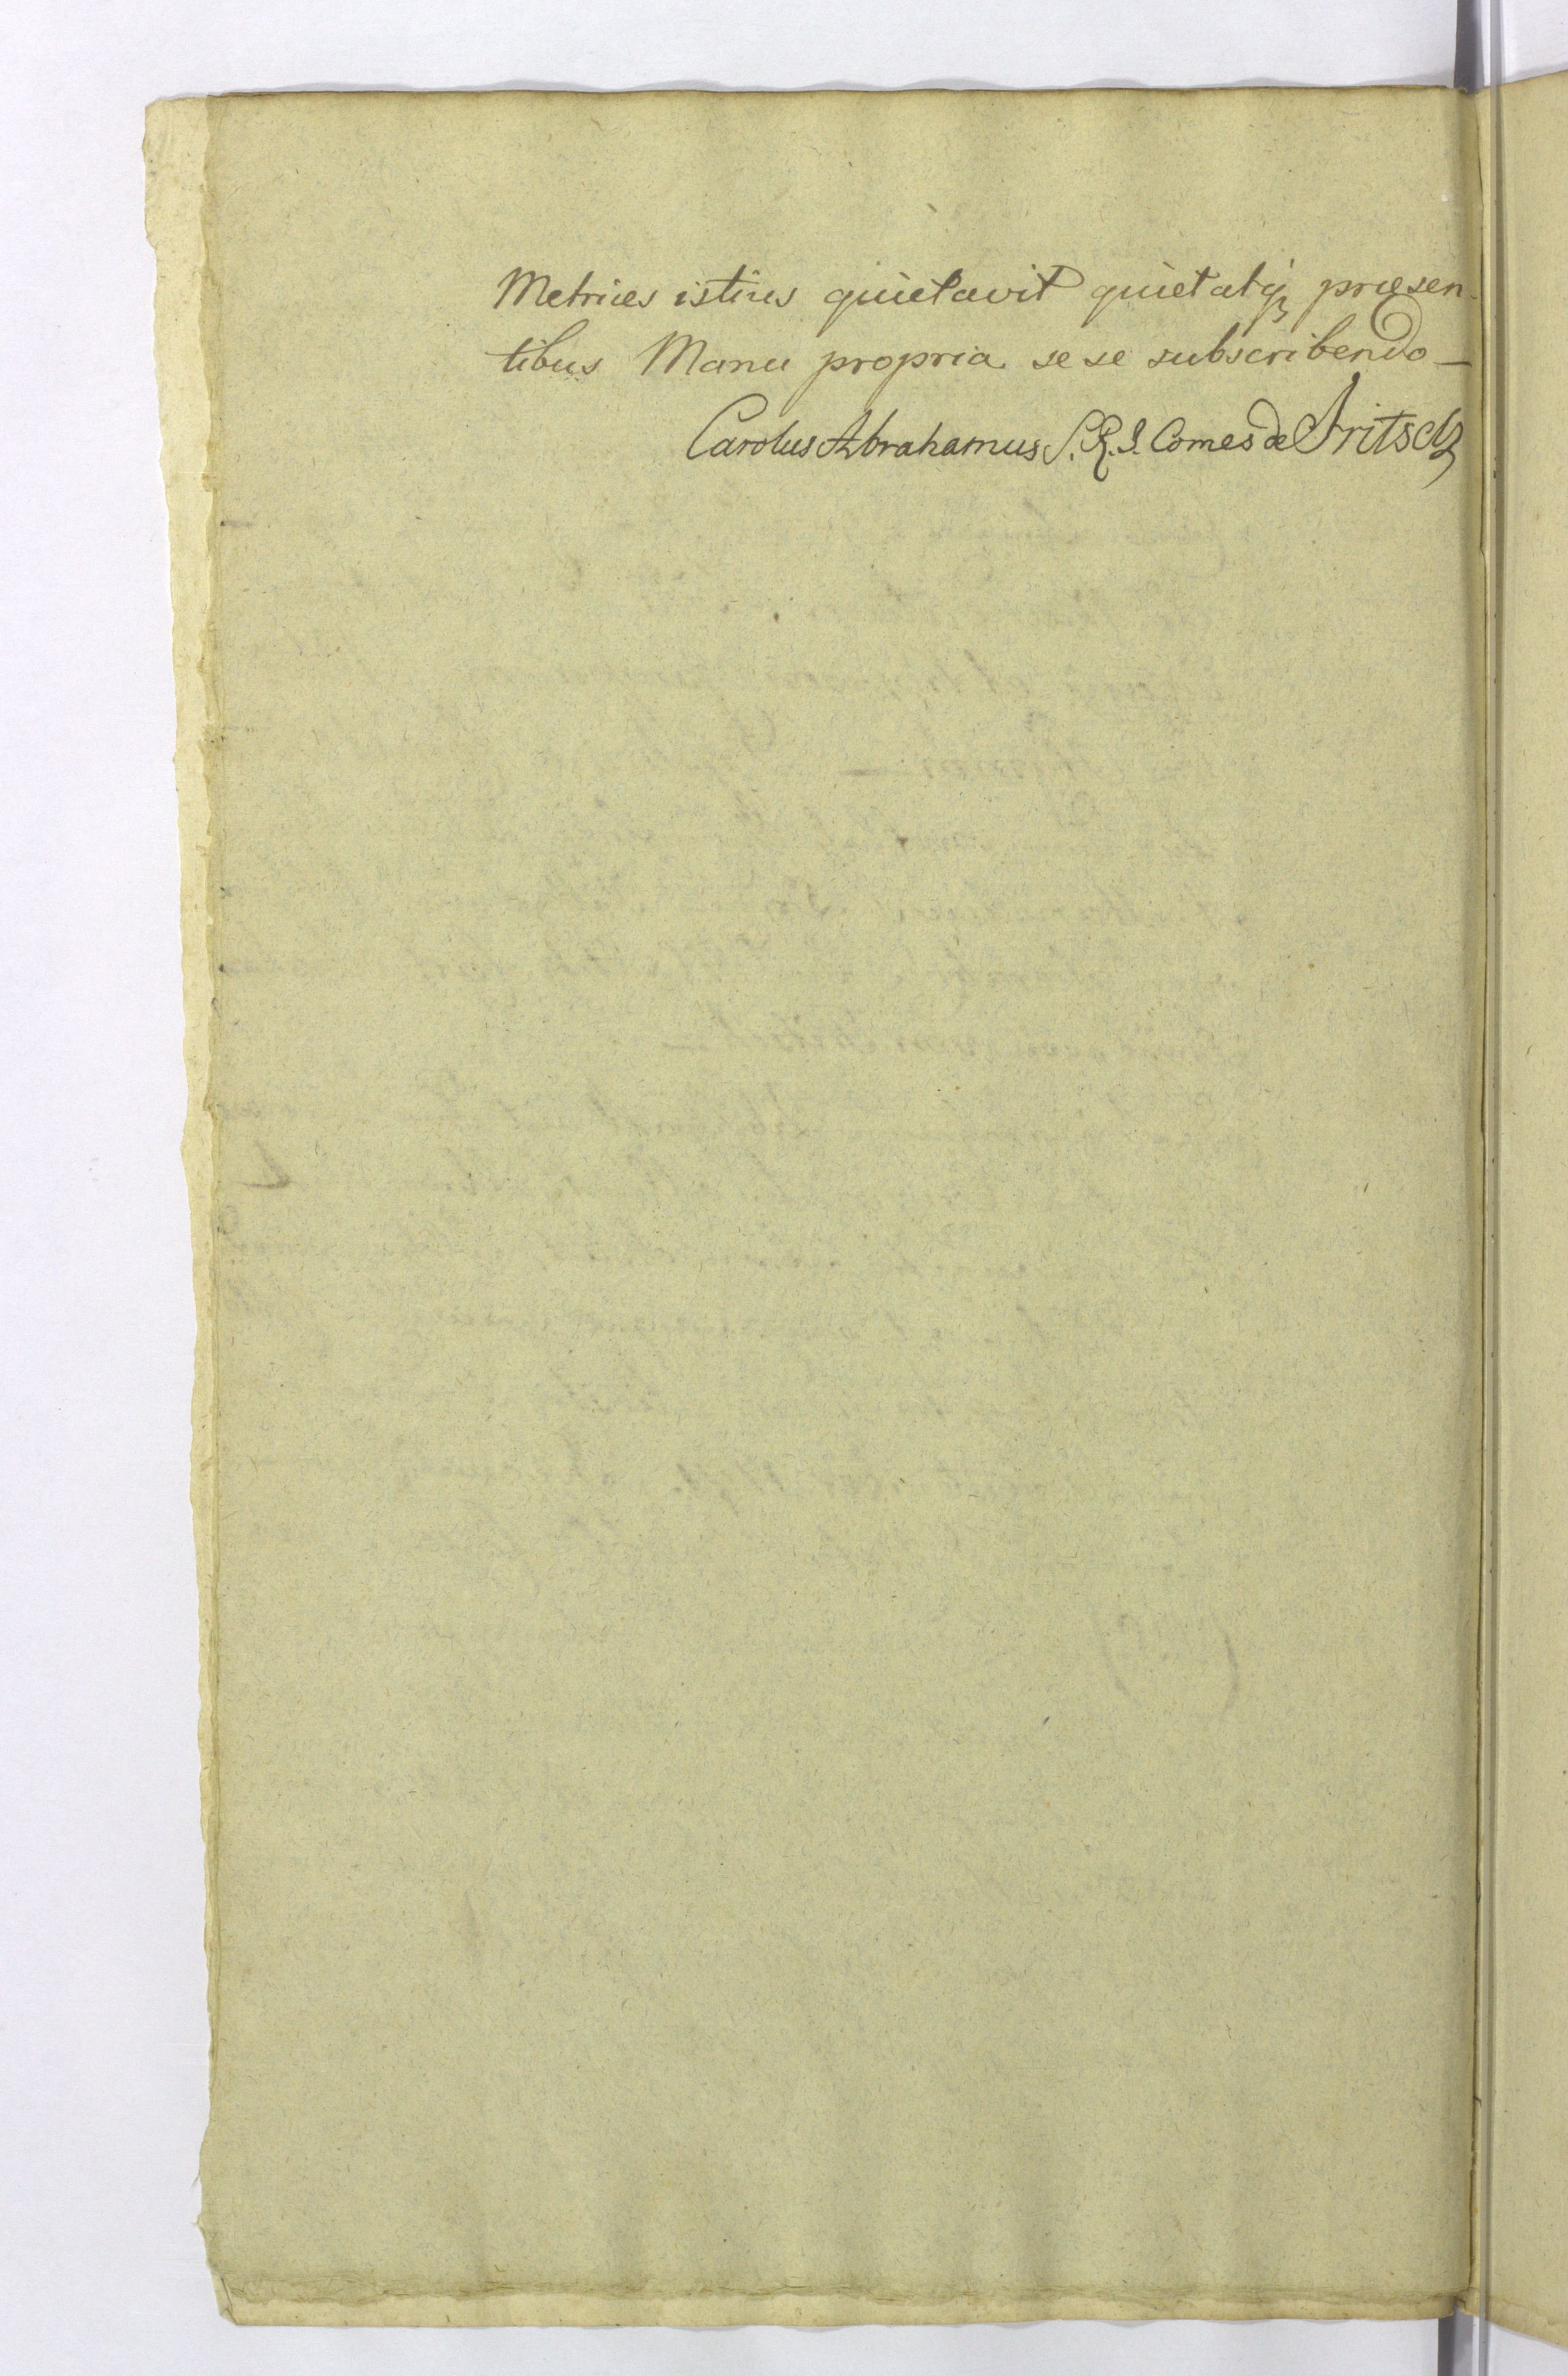 Metrices istius quietavit quietatq₃ præsen-
tibus Manu propria se se subscribendo —
Carolus Abrahamus S. R. I. Comes de Fritsch